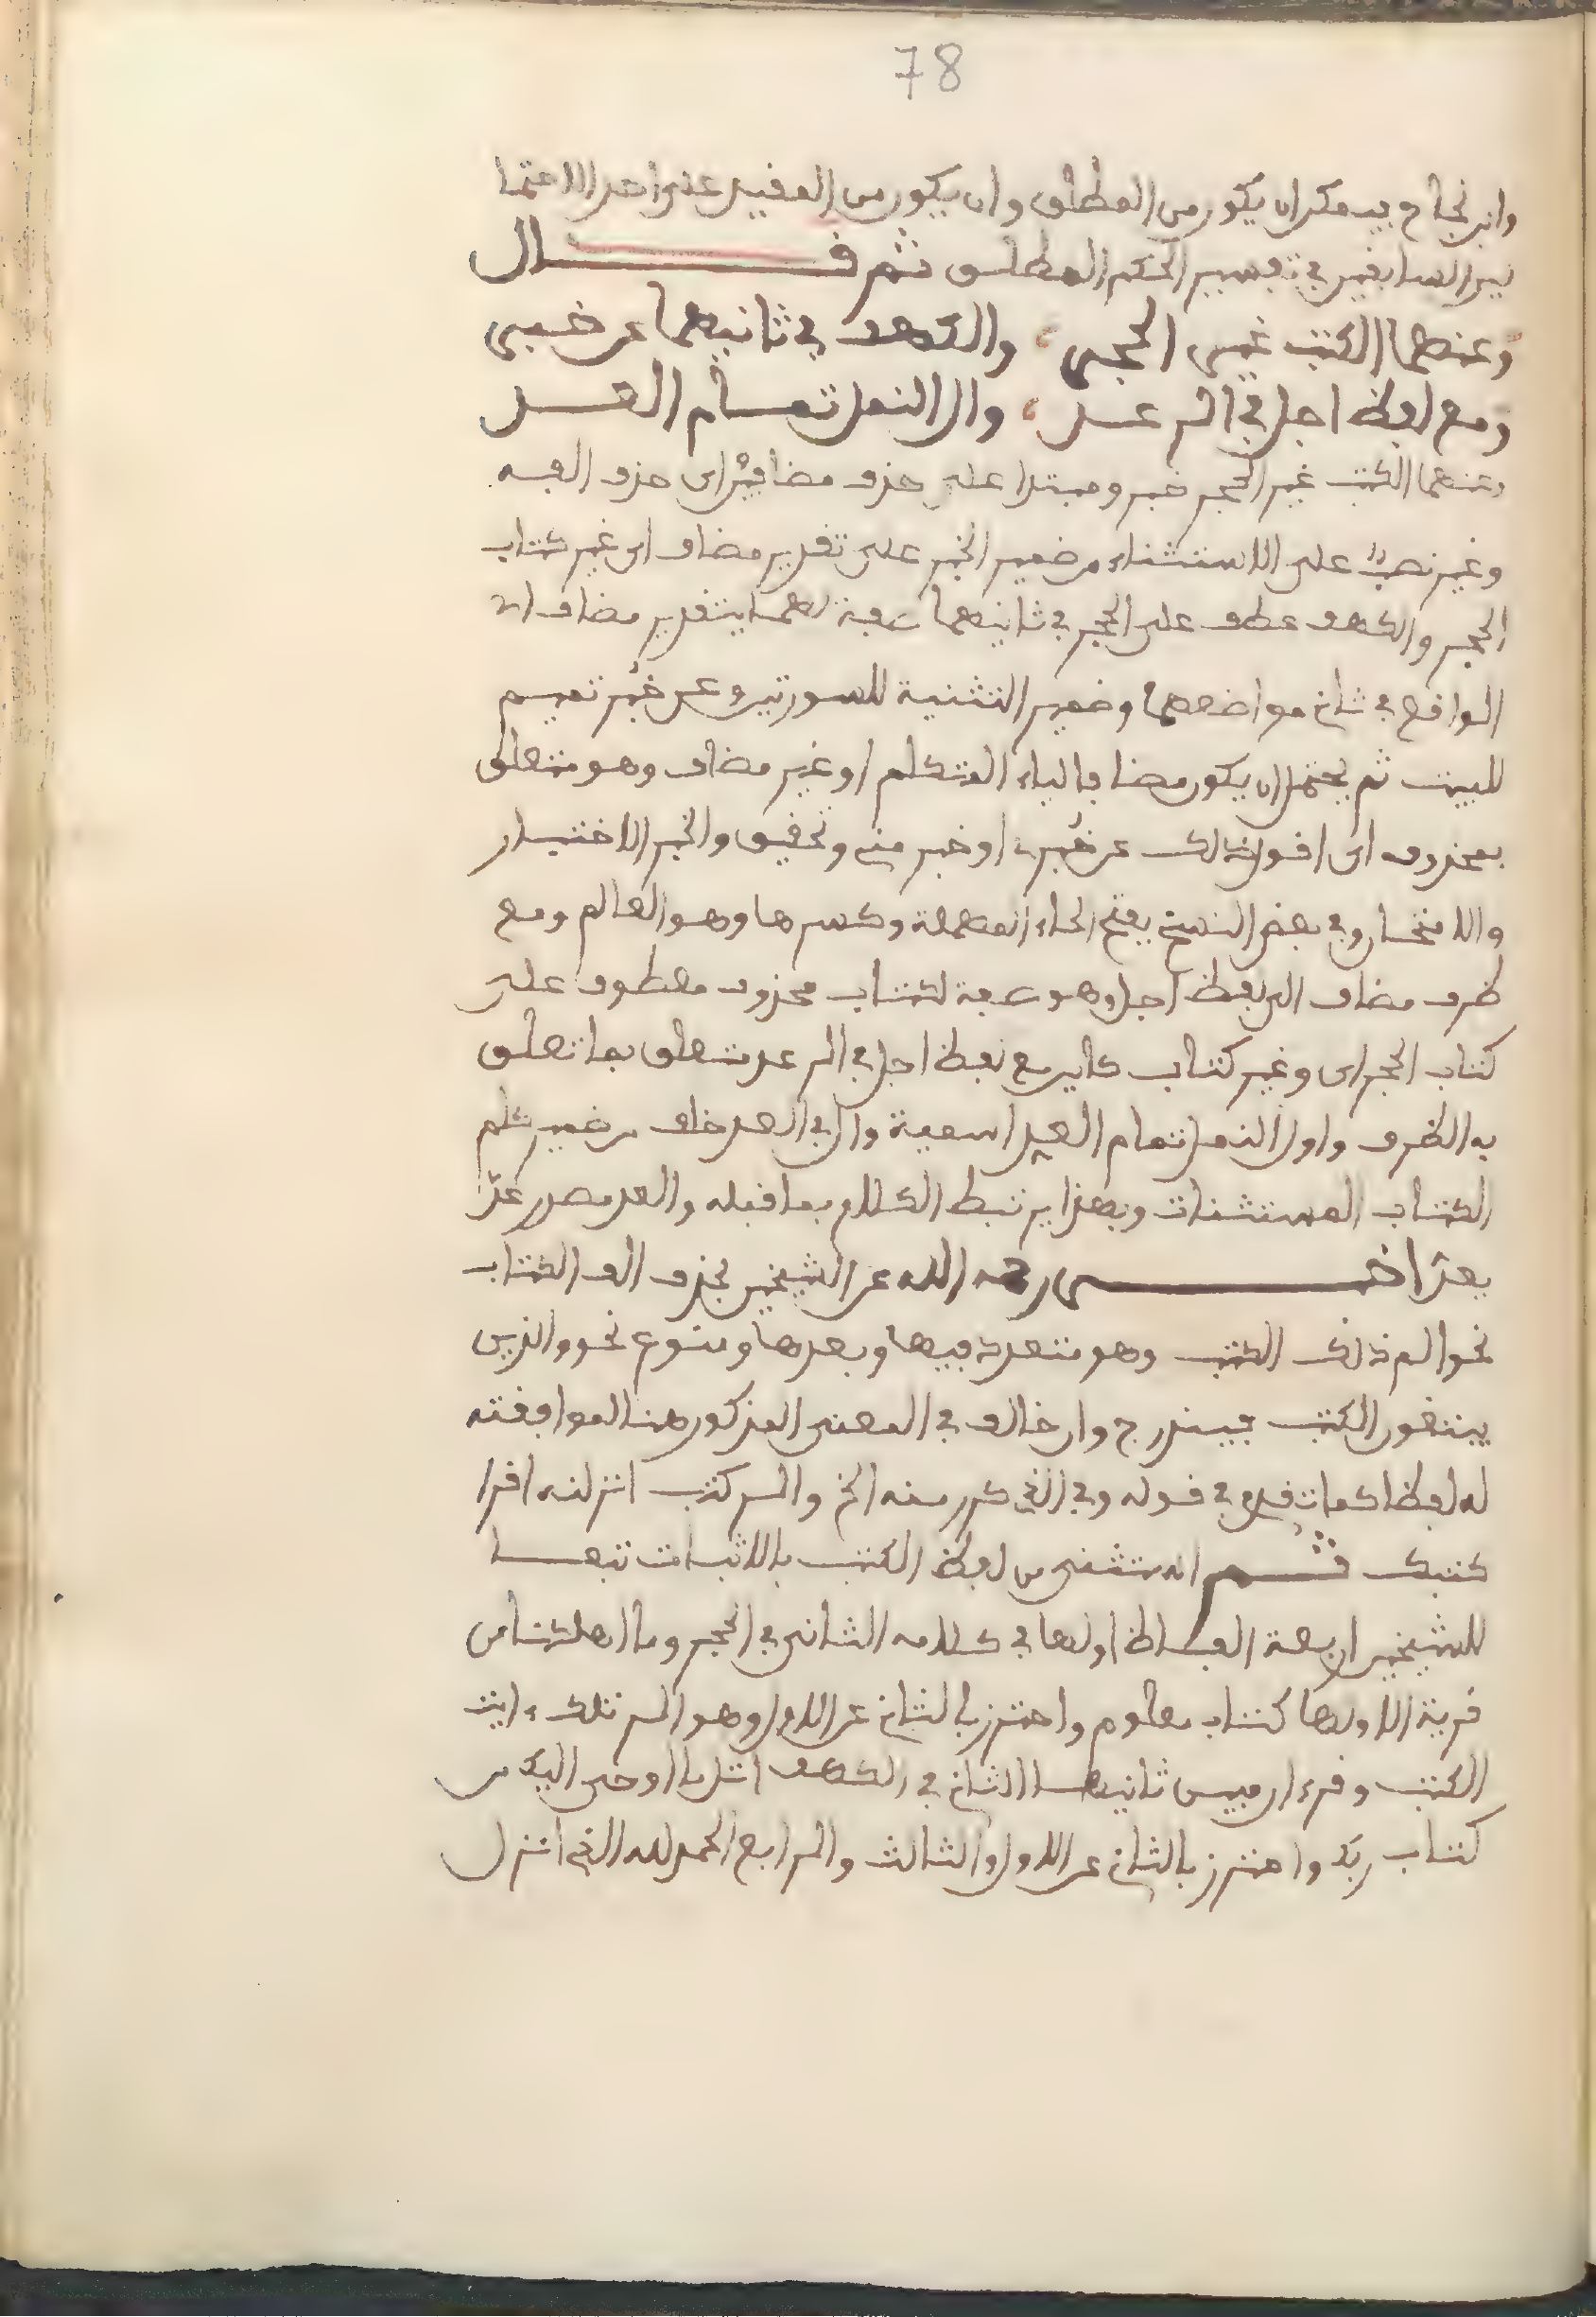 78
وابن نجاح فيمكن ان يكون من المطلق وان يكون من المقيد على احد الاحتما
لين السابقين في تفسير الحكم المطلق ثم قال
وعنهما الكتب غير الحجر والكهف في ثانيهما عن خبر
ومع لفظ اجل في الرعد واول النمل تمام العد
وعنهما الكتب غير الحجر خبر ومبتدا على حذف مضافين اى حذف الف
وغير نصب على الاستثناء من ضمير الخبر على تقدير مضاف اى غير كتاب
الحجر والكهف عطف على الحجر في ثانيهما صفة لهما بتقدير مضاف اى
الواقع في ثاني مواضعهما وضمير التثنية للسورتين وعن خبر تميم
للبيت ثم يحتمل ان يكون مضافا لياء المتكلم او غير مضاف وهو متعلق
بمحذوف اى اقول ذلك عن خبرى او خبر منى وتحقيق والخبر الاختبار
والامتحان وفي بعض النسخ بفتح الحاء المهملة وكسرها وهو العالم ومع
ظرف مضاف الى لفظ اجل وهو صفة لكتاب محذوف معطوف على
كتاب الحجر اى وغير كتاب كاين مع لفظ اجل في الرعد متعلق بما تعلق
به الظرف واول النمل تمام العد اسمية وال في العد خلف من ضمير كلم
الكتاب المستثنات وبهذا يرتبط الكلام بما قبله والعد مصدر عدّ
يعدّ اخبر رحمه الله عن الشيخين بحذف الف الكتاب
نحو الم ذلك الكتب وهو متعدد فيها وبعدها ومنوع نحو والذين
يبتغون الكتب فيندرج وان خالف في المعنى المذكور هنا لموافقته
له لفظا كما تقدم في قوله وفي الذي كرر منه الخ والر كتب انزلنه اقرا
كتبك ثم استثنى من لفظ الكتب بالاثبات تبعا
للشيخين اربعة الفاظ اولها في كلامه الثاني في الحجر وما اهلكنا من
قرية الا ولها كتاب معلوم واحترز بالثاني عن الاول وهو الر تلك ءايت
الكتب وقرءان مبين ثانيها الثاني في الكهف اتل ما اوحى اليك من
كتاب ربك واحترز بالثاني عن الاول والثالث والرابع الحمد لله الذي انزل